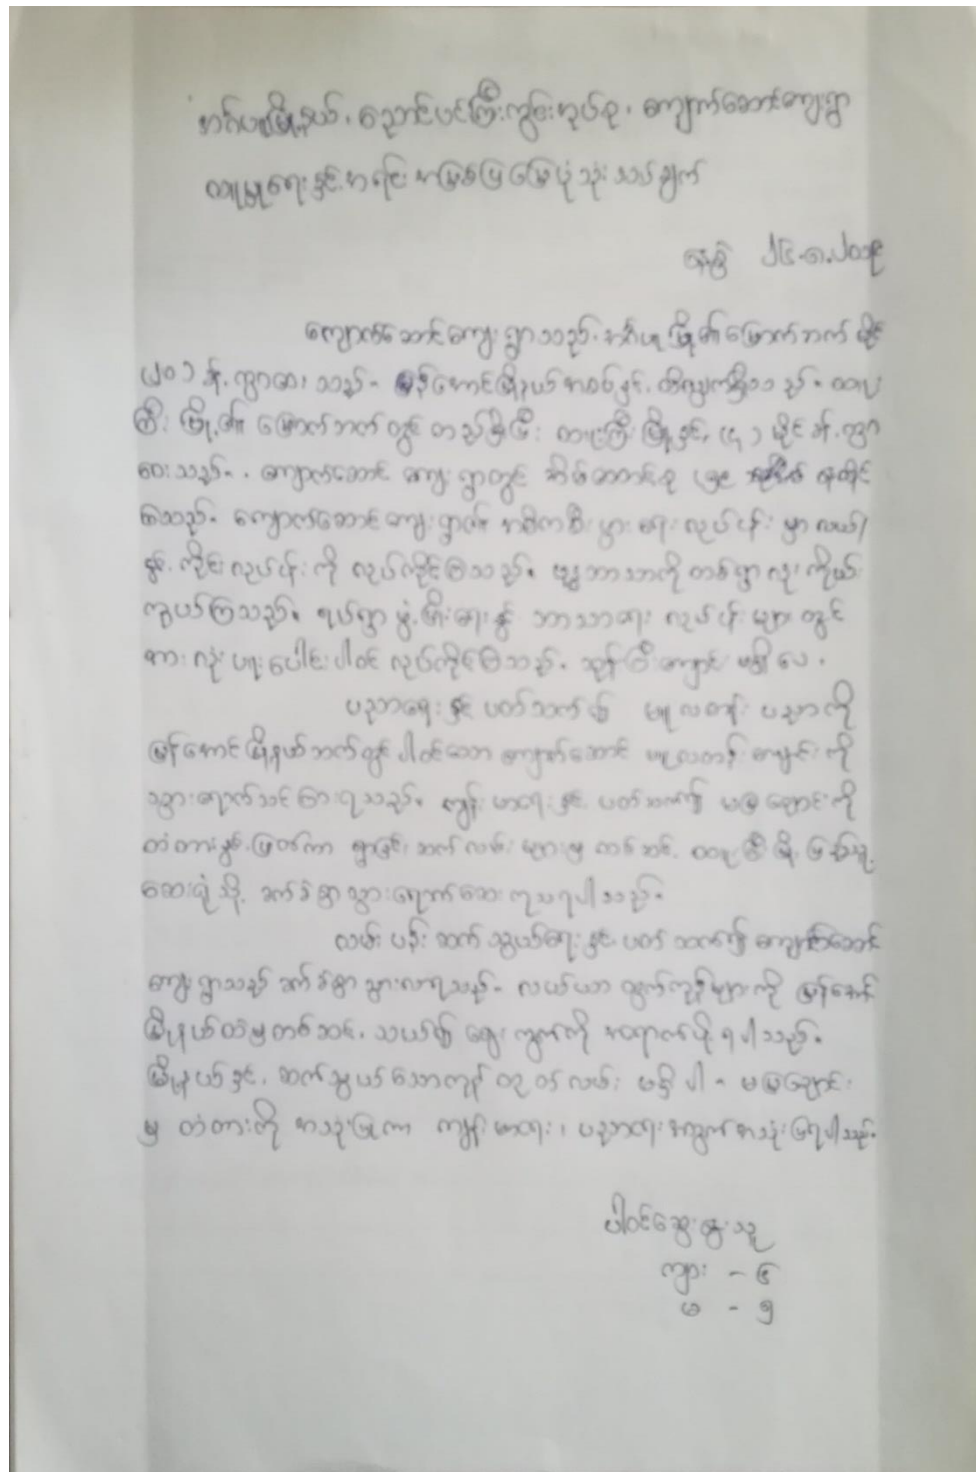 အင်္ဂပူမြို့နယ်၊ ညောင်ပင်ကြီးကွင်းအုပ်စု၊ ကျောက်ဆောင်ကျေးရွာ
လူမှုရေးနှင့် အရင်းအမြစ်ပြမြေပုံသုံးသပ်ချက်
နေ့စွဲ ၂၄-၈-၂၀၁၉
ကျောက်ဆောင်ကျေးရွာသည် အင်္ဂပူမြို့၏မြောက်ဘက် မိုင်
(၂၀) ခန့် ကွာဝေးသည်။ မြန်အောင်မြို့နယ်အစပ်နှင့် ထိလျှက်ရှိသည်။ ထူး
ကြီးမြို့၏ မြောက်ဘက်တွင် တည်ရှိပြီး ထူးကြီးမြို့နှင့် (၄) မိုင်ခန့် ကွာ
ဝေးသည်။ ကျောက်ဆောင်ကျေးရွာတွင် အိမ်ထောင်စု နေထိုင်
သည်။ ကျောက်ဆောင်ကျေးရွာ၏ အဓိကစီးပွားရေးလုပ်ငန်းမှာ လယ်/
နှင့် ကိုင်းလုပ်ငန်းကို လုပ်ကိုင်ကြသည်။ ဗုဒ္ဓဘာသာကို တစ်ရွာလုံးကိုး
ကွယ်ကြသည်။ ရပ်ရွာဖွံ့ဖြိုးရေးနှင့် ဘာသာရေးလုပ်ငန်းများတွင်
အားလုံးပူးပေါင်းပါဝင် လုပ်ကိုင်ကြသည်။ ဘုန်းကြီးကျောင်း မရှိပေ။
ပညာရေးနှင့်ပတ်သက်၍ မူလတန်းပညာကို
မြန်အောင်မြို့နယ်ဘက်တွင် ပါဝင်သော ကျောက်ဆောင် မူလတန်းကျောင်းကို
သွားရောက်သင်ကြားရသည်။ ကျန်းမာရေးနှင့် ပတ်သက်၍ မမြချောင်းကို
တံတားနှင့်ဖြတ်ကာ ရွာချင်းဆက်လမ်းများမှ တစ်ဆင့် ထူးကြီးမြို့ ပြည်သူ့
ဆေးရုံသို့ ခက်ခဲစွာသွားရောက်ဆေးကုသရပါသည်။
လမ်းပန်းဆက်သွယ်ရေးနှင့်ပတ်သက်၍ ကျောက်ဆောင်
ကျေးရွာသည် ခက်ခဲစွာသွားလာရသည်။ လယ်ယာထွက်ကုန်များကို မြန်အောင်
မြို့နယ်ထဲမှတစ်ဆင့် သယ်၍ ဈေးကွက်ကို အရောက်ပို့ရပါသည်။
မြို့နယ်နှင့် ဆက်သွယ်သောကုန်ထုတ်လမ်း မရှိပါ။ မမြချောင်း
မှ တံတားကို အသုံးပြုကာ ကျန်းမာရေး၊ ပညာရေးအတွက်အသုံးပြုရပါသည်။
ပါဝင်ဆွေးနွေးသူ
ကျား - ၆
မ - ၅